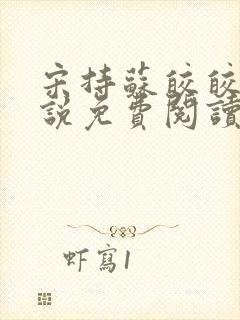 宋持蘇皎皎
說免費閱讀
虾寫1